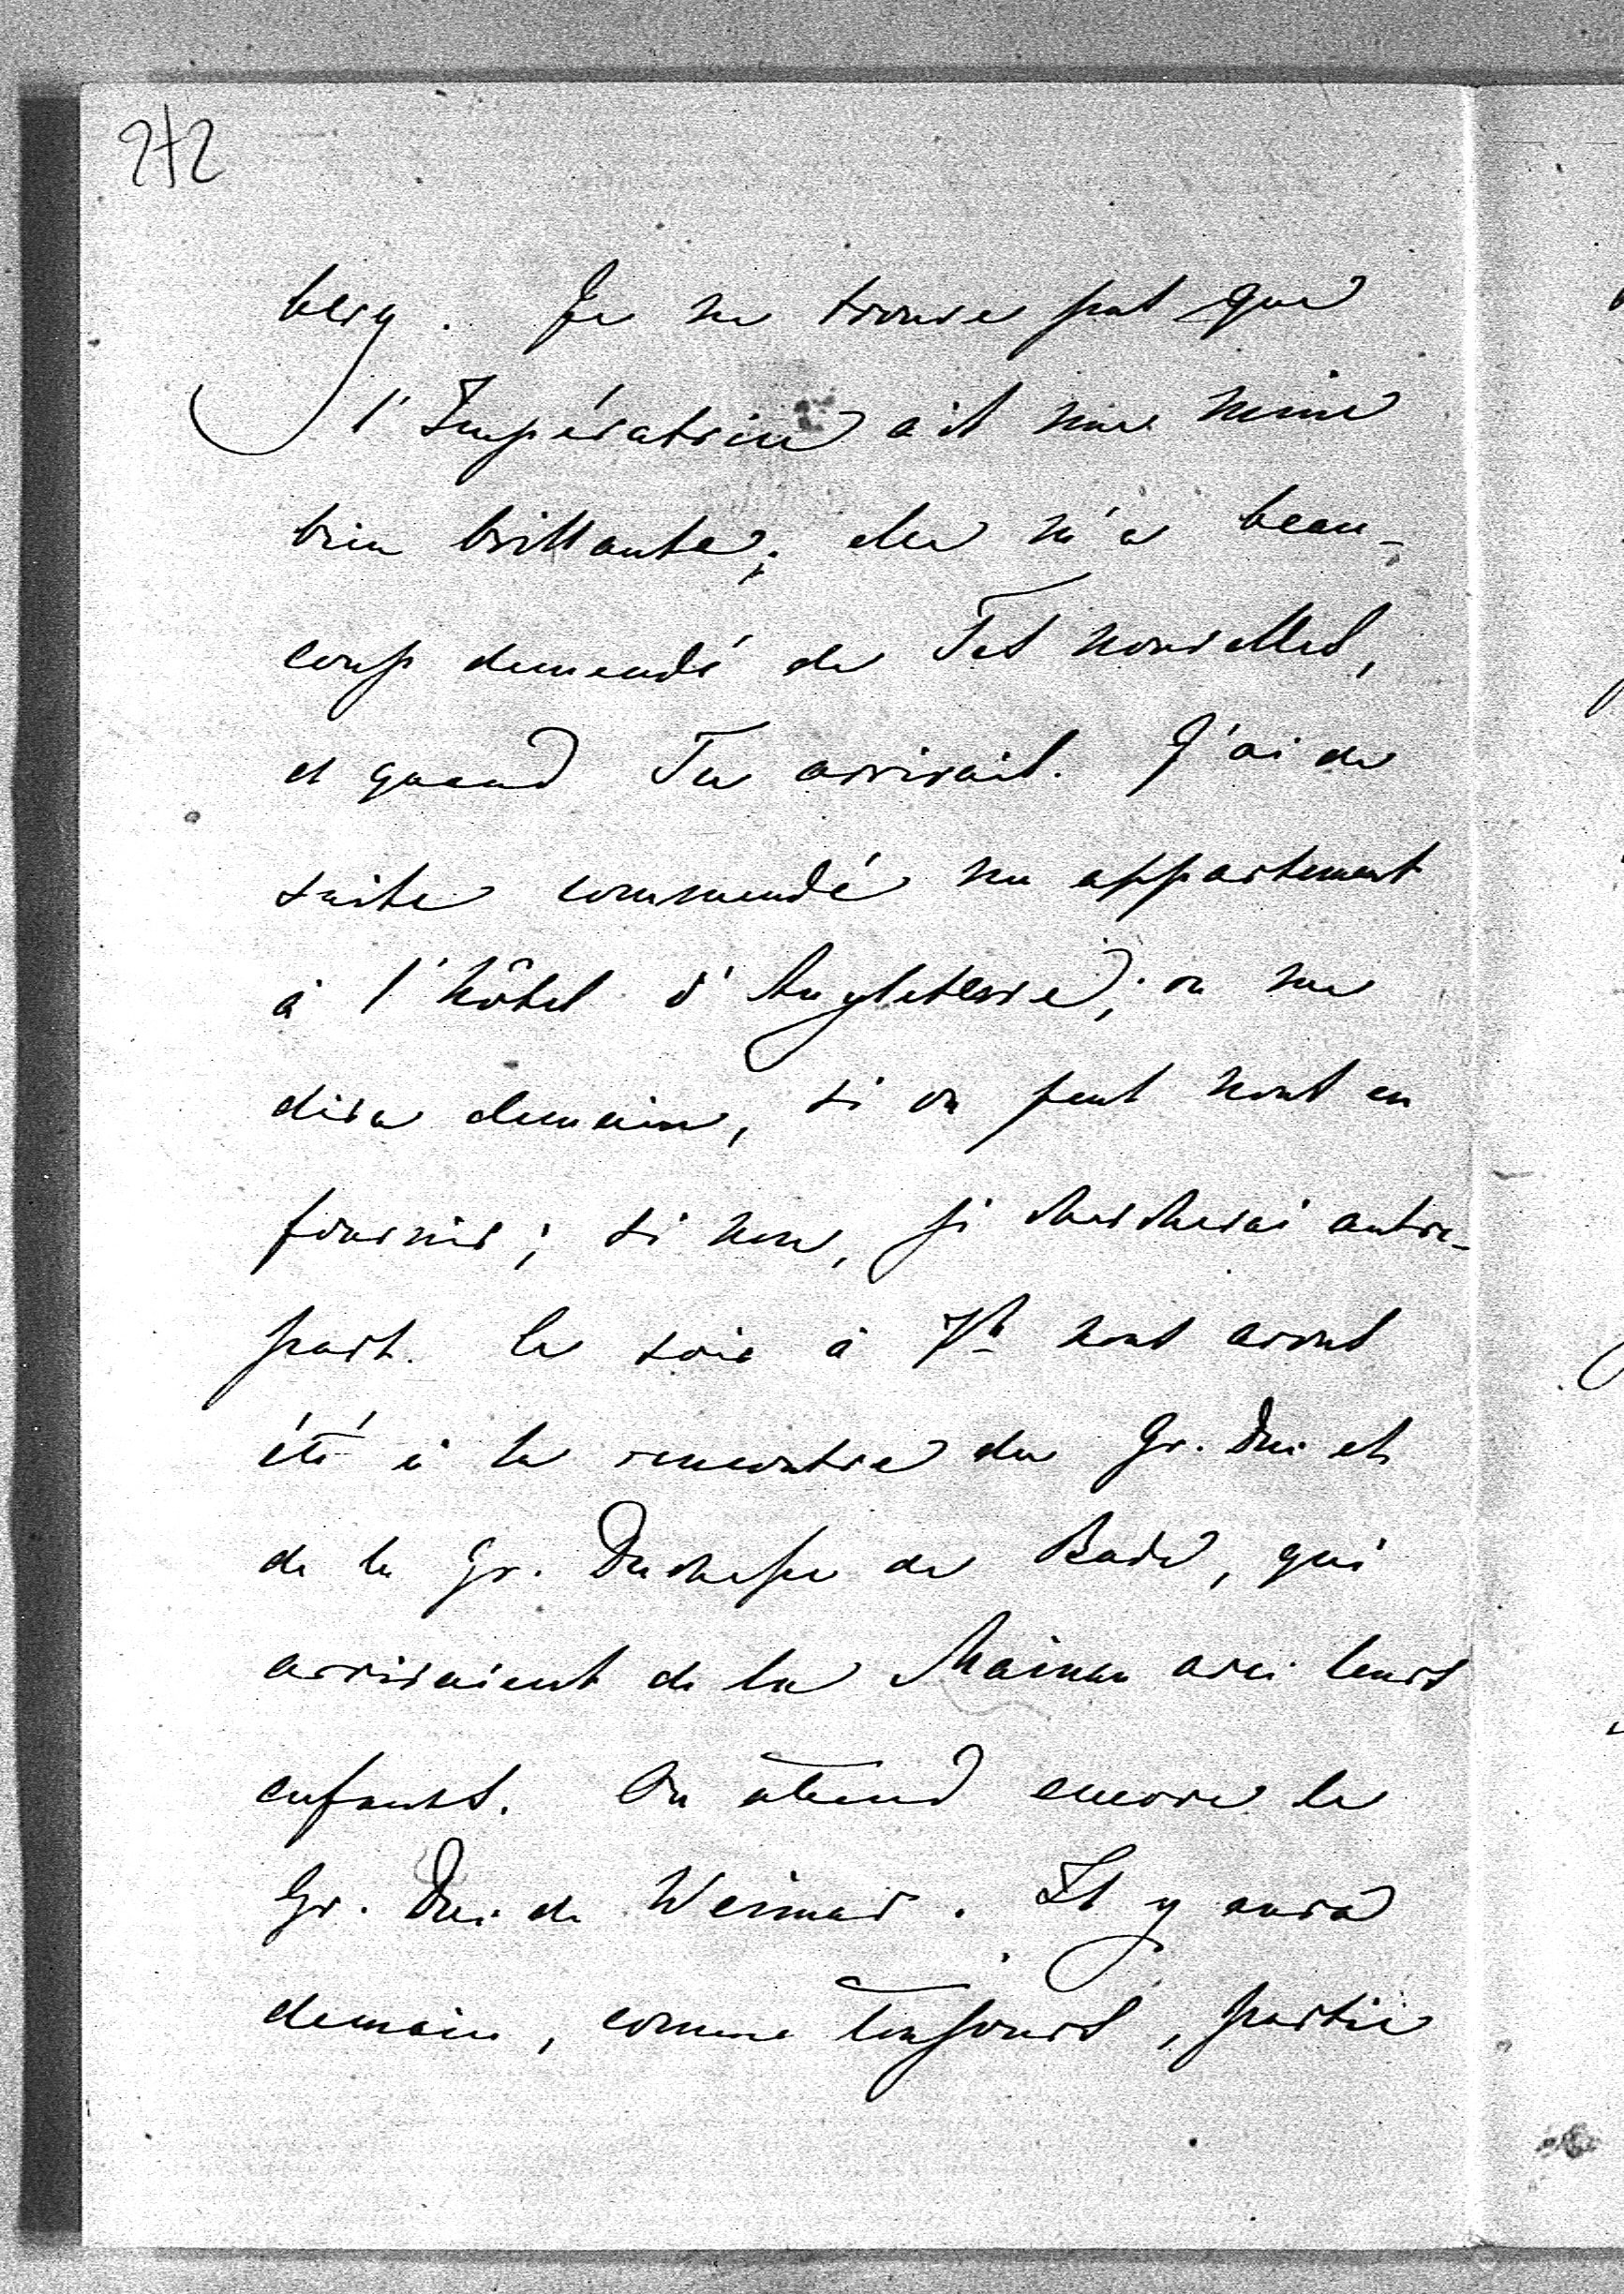 272
berg. Je ne trouve pas que
l'Impératrice ait une mine
bien brillante; elle m'a beau-
coup demandé de Tes nouvelles,
et quand Tu arrivais. J'ai de
suite commendé un appartement
à l'hôtel d'Angleterre; on me
dira demain, si on peut nous en
fournir; si non, j'i chercherai autre-
part. Le soir à 7h nous avons
été à la rencontre du Gr. Duc et
de la Gr. Duchesse de Bade, qui
arrivaient de la Mainau avec leurs
enfants. On attend encore le
Gr. Duc de Weimar. Il y aura
demain, comme toujours, partie